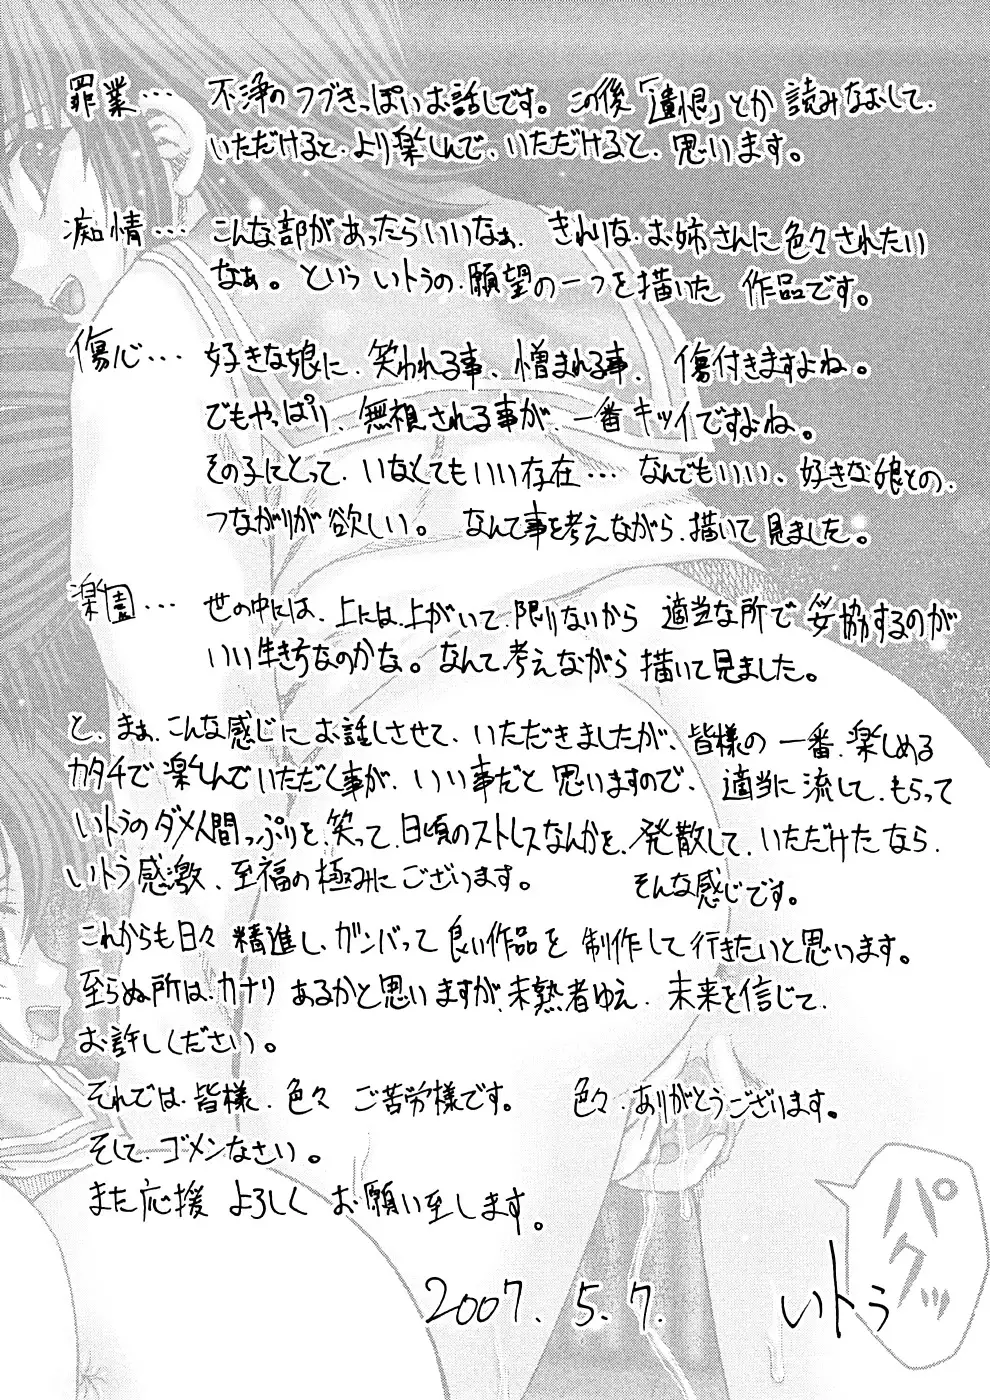 罪業… 不浄のつづきっぽいお話しです。この後「遺恨」とか読みなおして、
いただけると、より楽しんで、いただけると、思います。
痴情… こんな部があったらいいなぁ、きれいなお姉さんに色々されたい
なぁ。という いトうの、願望の一つを描いた 作品です。
傷心… 好きな娘に、笑われる事、憎まれる事、傷付きますよね。
でもやっぱり、無視される事が、一番キツイですよね。
その子にとって、いなくてもいい存在… なんでもいい、好きな娘との、
つながりが欲しい。 なんて事を考えながら、描いて見ました。
楽園… 世の中には、上には、上がいて、限りないから 適当な所で妥協するのが
いい生き方なのかな。なんて考えながら描いて見ました。
と、まぁ、こんな感じに お話しさせて、いただきましたが、皆様の 一番、楽しめる
カタチで 楽しんでいただく事が、いい事だと思いますので、適当に流して、もらって
いトうのダメ人間っぷりを、笑って、日頃のストレスなんかを、発散して、いただけたなら、
いトう感激、至福の極みにございます。 そんな感じです。
これからも日々 精進し、ガンバって 良い作品を 制作して行きたいと思います。
至らぬ所は、カナリ あるかと思いますが、未熟者ゆえ、未来を信じて、
お許しください。
それでは、皆様、色々 ご苦労様です。 色々、ありがとうございます。
そして、ゴメンなさい。
また応援 よろしく お願い至します。
2007. 5. 7. いトう
パクッ